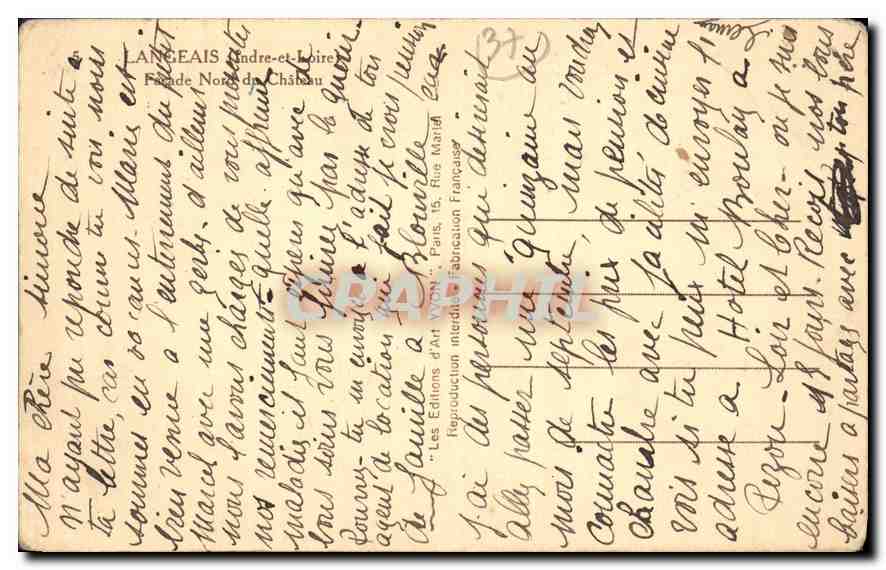 5 LANGEAIS (Indre-et-Loire)
Façade Nord du Château
37
Ma chère Simone
n'ayant pu repondre de suite a
ta lettre, car comme tu vois nous
sommes en vacances. Marie est
bien venue a l'enterrement du petit
Marcel avec une gerbe, d'ailleurs
nous l'avons chargée de vous porter
nos remerciements. quelle affreuse
maladie il faut espérer qu'avec de
bons soins vous finirez pas le guérir.
Pourrez-tu m'envoyer l'adresse de ton
agent de location qui fait je crois pension
de famille a Blonville
" Les Editions d'Art YVON ", Paris, 15, Rue Martel
Reproduction interdite - Fabrication Française
CPAPHIL
J'ai des personnes qui désirent
aller passer une quinzaine au
mois de septembre, mais voudrez
connaitre les prix de pension et
chambre avec facilités de cuisine
vois si tu peux m'envoyer si
adresse a Hotel Boulay a
Pezou - Loir et Cher - ou je suis
encore 8 jours. Reçoit nos bons
baisers a partager avec ton père